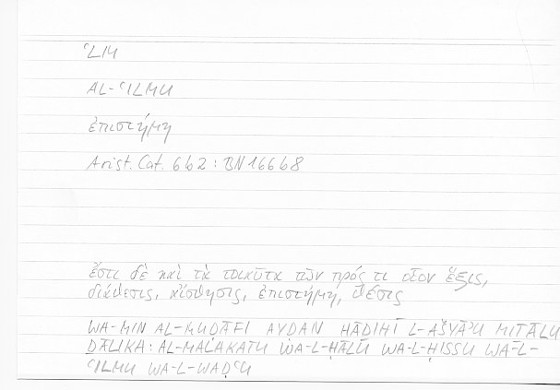 ʿLM
AL-ʿILMU
ἐπιστήμη
Arist. Cat. 6b2 : BN 166b8
ἔστι δὲ καὶ τὰ τοιαῦτα τῶν πρός τι οἷον ἕξις,
διάθεσις, αἴσθησις, ἐπιστήμη, θέσις
WA-MIN AL-MUḌĀFI AYḌAN HĀḎIHĪ L-AŠYĀʾU MIṮĀLU
ḎĀLIKA : AL-MALAKATU WA-L-ḤĀLU WA-L-ḤISSU WA-L-
ʿILMU WA-L-WAḌʿU